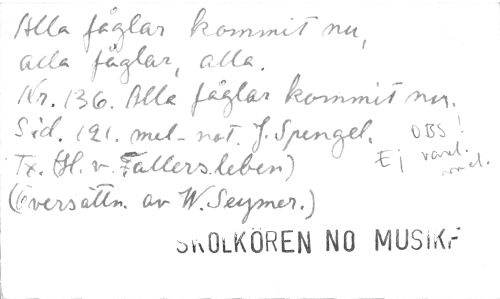 Alla fåglar kommit nu,
alla fåglar, alla.
Nr. 136. Alla fåglar kommit nu.
Sid. 121. mel-not. J. Spengel.
OBS!
Ej vanl.
mel.
Tx. (H. v. Fallersleben)
(Översättn. av W. Seymer.)
SKOLKÖREN NO MUSIK